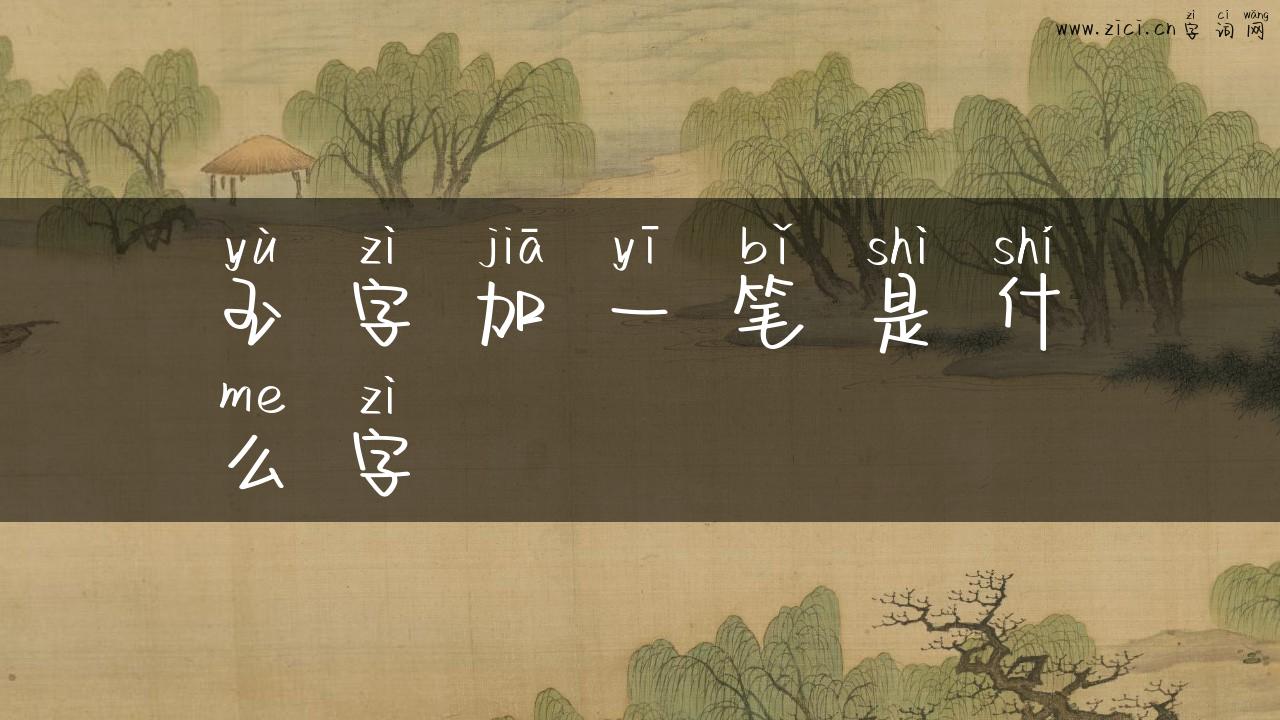 zì cí wǎng
www.zici.cn 字词网
yù zì jiā yī bǐ shì shí
玉字加一笔是什
me zì
么字